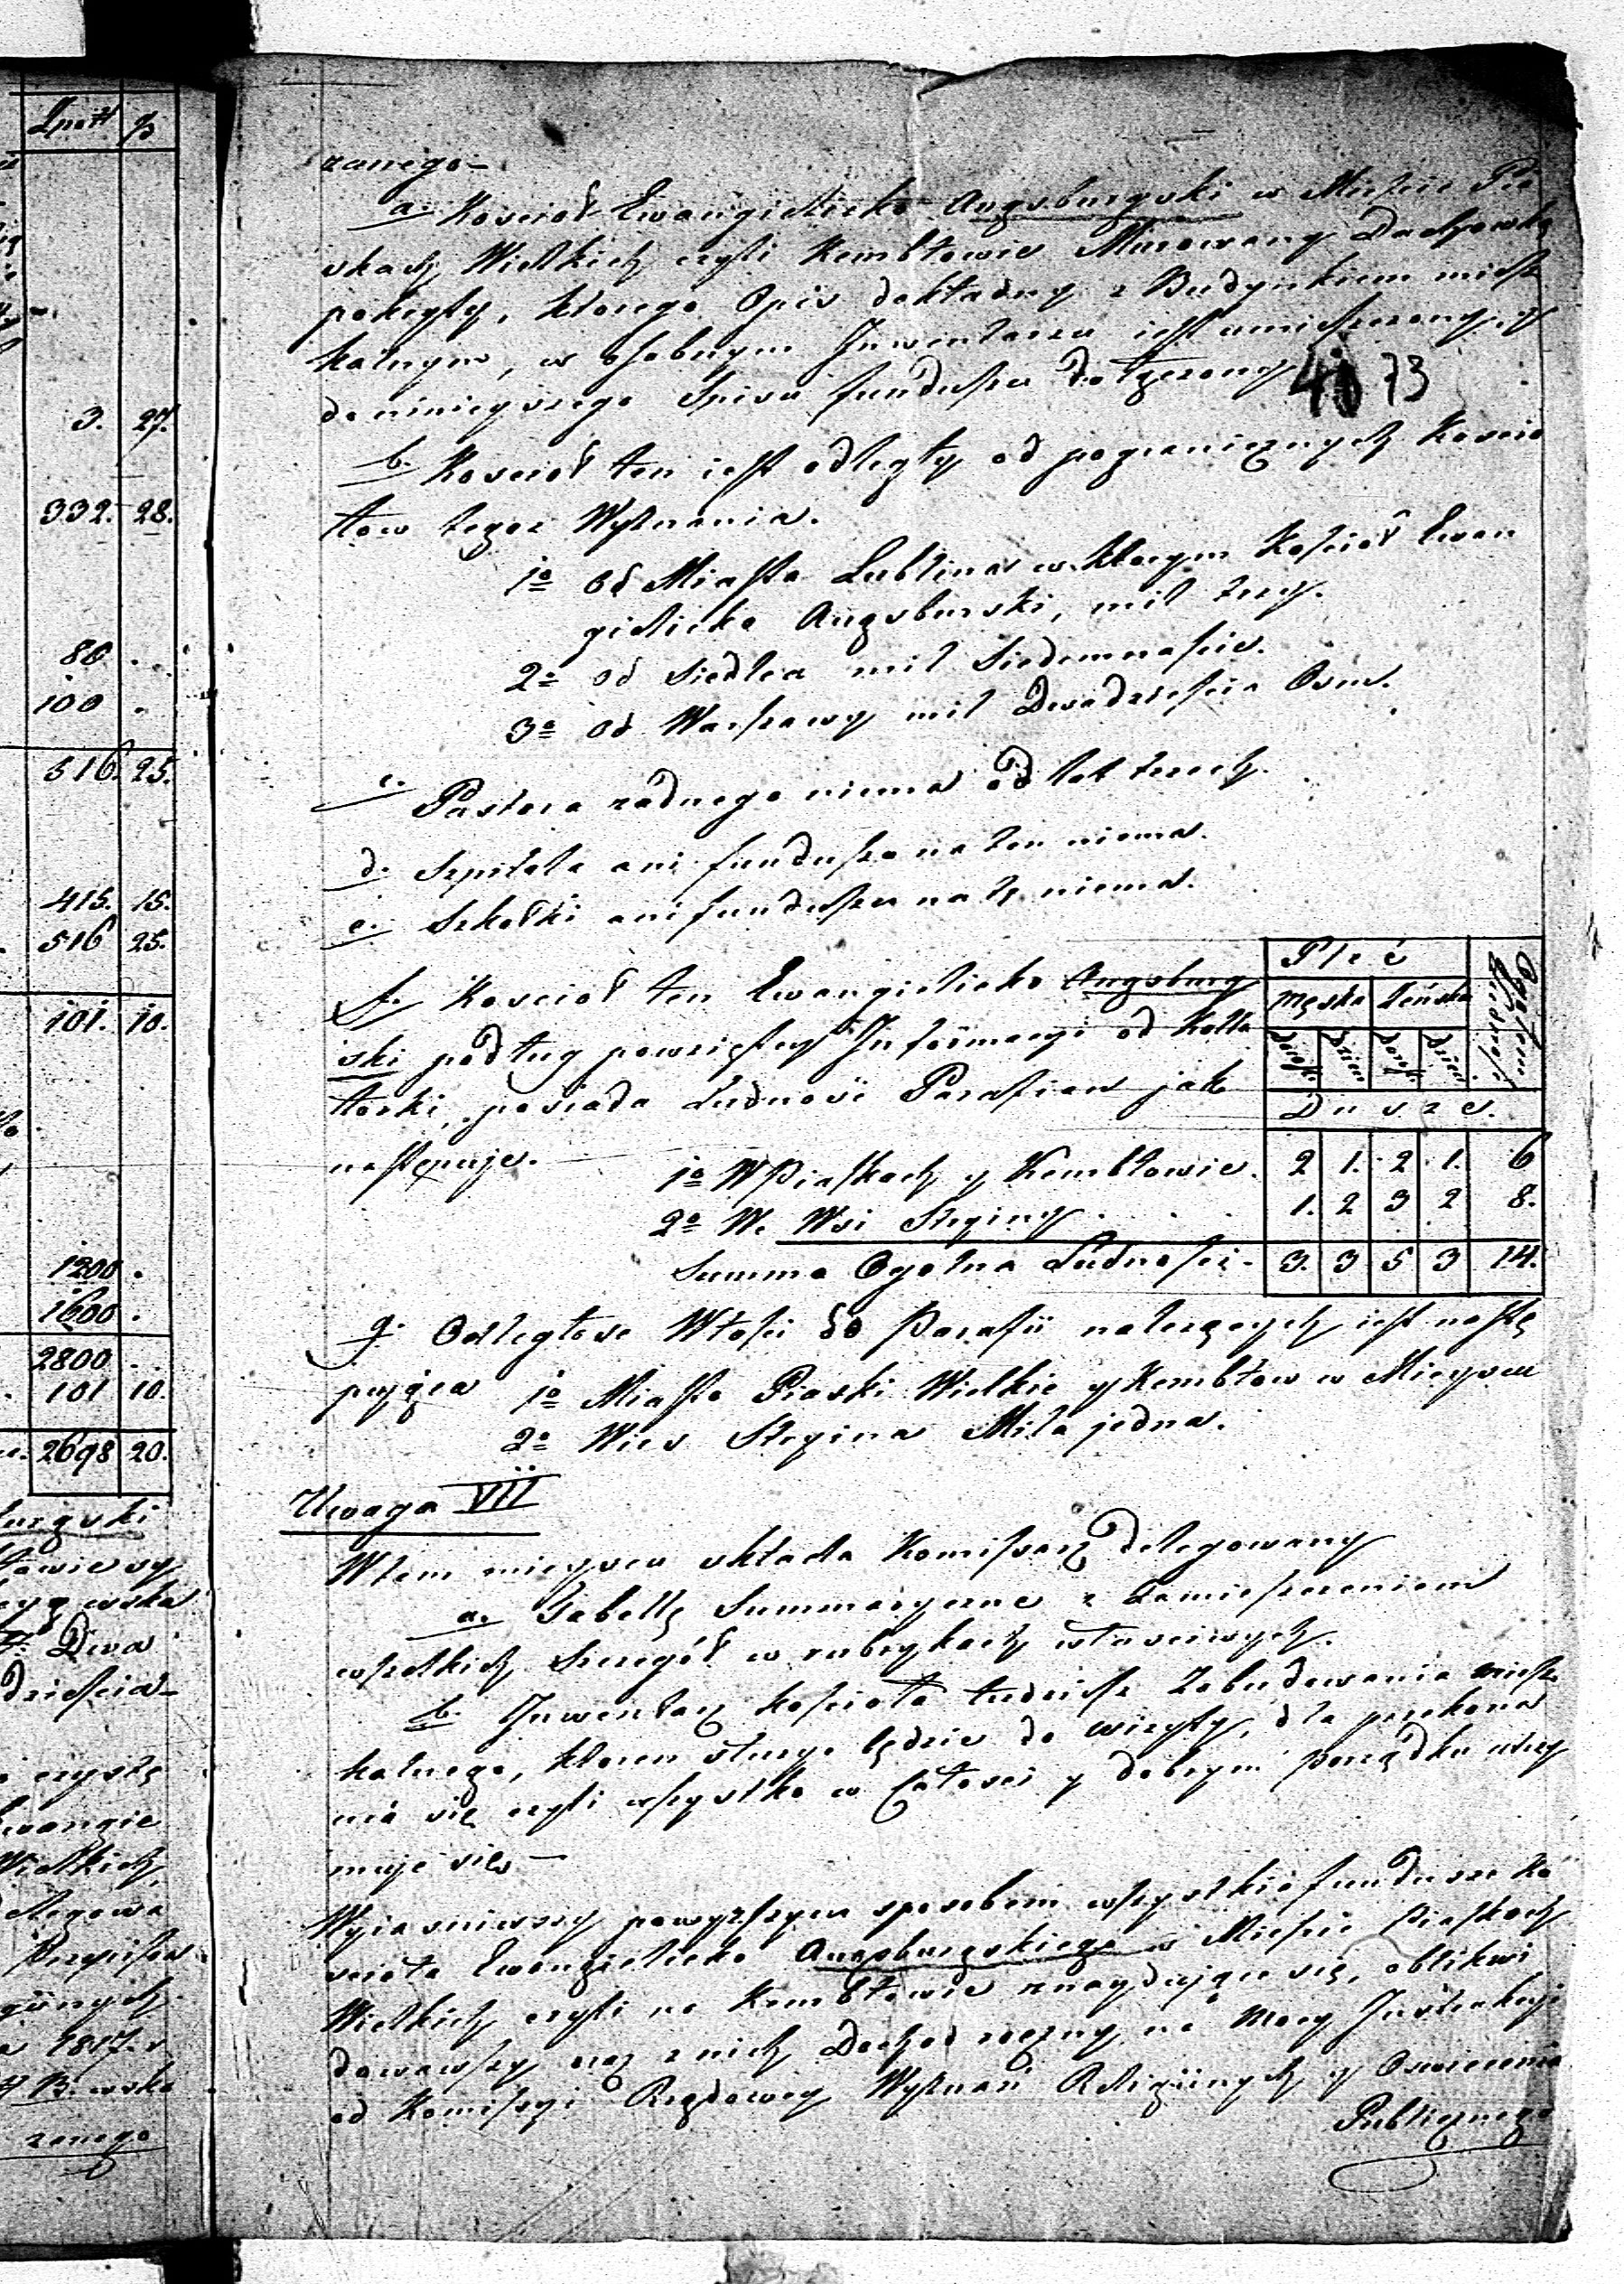 Złpol gr
3. 27.
332. 28.
80 .
100 .
516. 25.
415. 15.
516 25.
101. 10.
1200 .
1600 .
2800 .
101 10.
2698 20.
Dwa
dzieścia
czystę
Wielkich
1817. r
zanego
zanego
a. Kościoł Ewangielicko Augsburgski w Mieście Pia
skach Wielkich czyli Kembłowie Murowany Dachówką
pokryty, ktorego Opis dokładny z Budynkiem miesz
kalnym, w osobnym Inwentarzu iest umieszczony, y
do ninieyszego Spisu funduszu dołączony
73
b. Kościoł ten iest odległy od pogranicznych Koscio
łow tegoz Wyznania.
1o od Miasta Lublina w ktorym Kościoł Ewan
gielicko Augsburski, mil trzy.
2o od Siedlca mil Siedemnaście.
3o od Warszawy mil Dwadzieścia Osm.
c. Pastora żadnego niema od lat trzech.
d. Szpitala ani funduszu na ten niema.
e. Szkołki ani funduszu na tę niema.
f. Kościoł ten Ewangielicko Augsburg
ski podług powziętey Informacyi od Kolla
torki, posiada Ludnosci Parafian jak
następuje.
Płeć
męska żeńska
Ogułem Ludność
Dorośli Dzieci Dorośli Dzieci
Dusze.
1o W Piaskach y Kembłowie. 2 1. 2. 1. 6
2o We Wsi Stryiny . . . 1. 2 3 2 8.
Summa Ogolna Ludności. 3. 3 5 3 14.
g. Odległosc Włości do Parafii należących iest nastę
pująca 1o Miasto Piaski Wielkie y Kembłow w Mieyscu
2o Wies Stryina Mila jedna.
Uwaga VII
W tem mieyscu składa Komissarz Delegowany
a. Tabellę Summaryczne z Zamieszczeniem
wszelkich Szczegół w rubrykach właściwych.
b. Inwentarz Kościoła tudzież Zabudowania miesz
kalnego, ktoren służyć będzie do wizyty, dla przekona
nia się czyli wszystko w Całości y dobrym porządku utrzy
muje się
Wyiasniwszy powyższym sposobem wszystkie fundusze Ko
scioła Ewangielicko Augsburgskiego w Mieście Piaskach
Wielkich czyli na Kembłowie znayduiące się, oblikwi
dowawszy oraz z nich Dochod roczny na mocy Instrukcyi
od Komissyi Rządowey Wyznań Religiinych y Oswiecenia
Publicznego